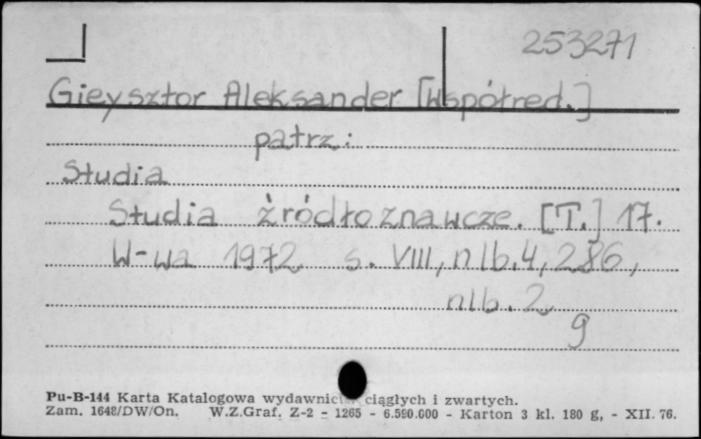 253271
Gieysztor Aleksander [Współred.]
patrz:
Studia
Studia źródłoznawcze. [T.] 17.
W-wa 1972 s. VIII, nlb. 4, 286,
nlb. 2
g
Pu-B-144 Karta Katalogowa ciągłych i zwartych.
Zam. 1648/DW/On. W.Z.Graf. Z-2 - 1265 - 6.590.000 - Karton 3 kl. 180 g, - XII. 76.